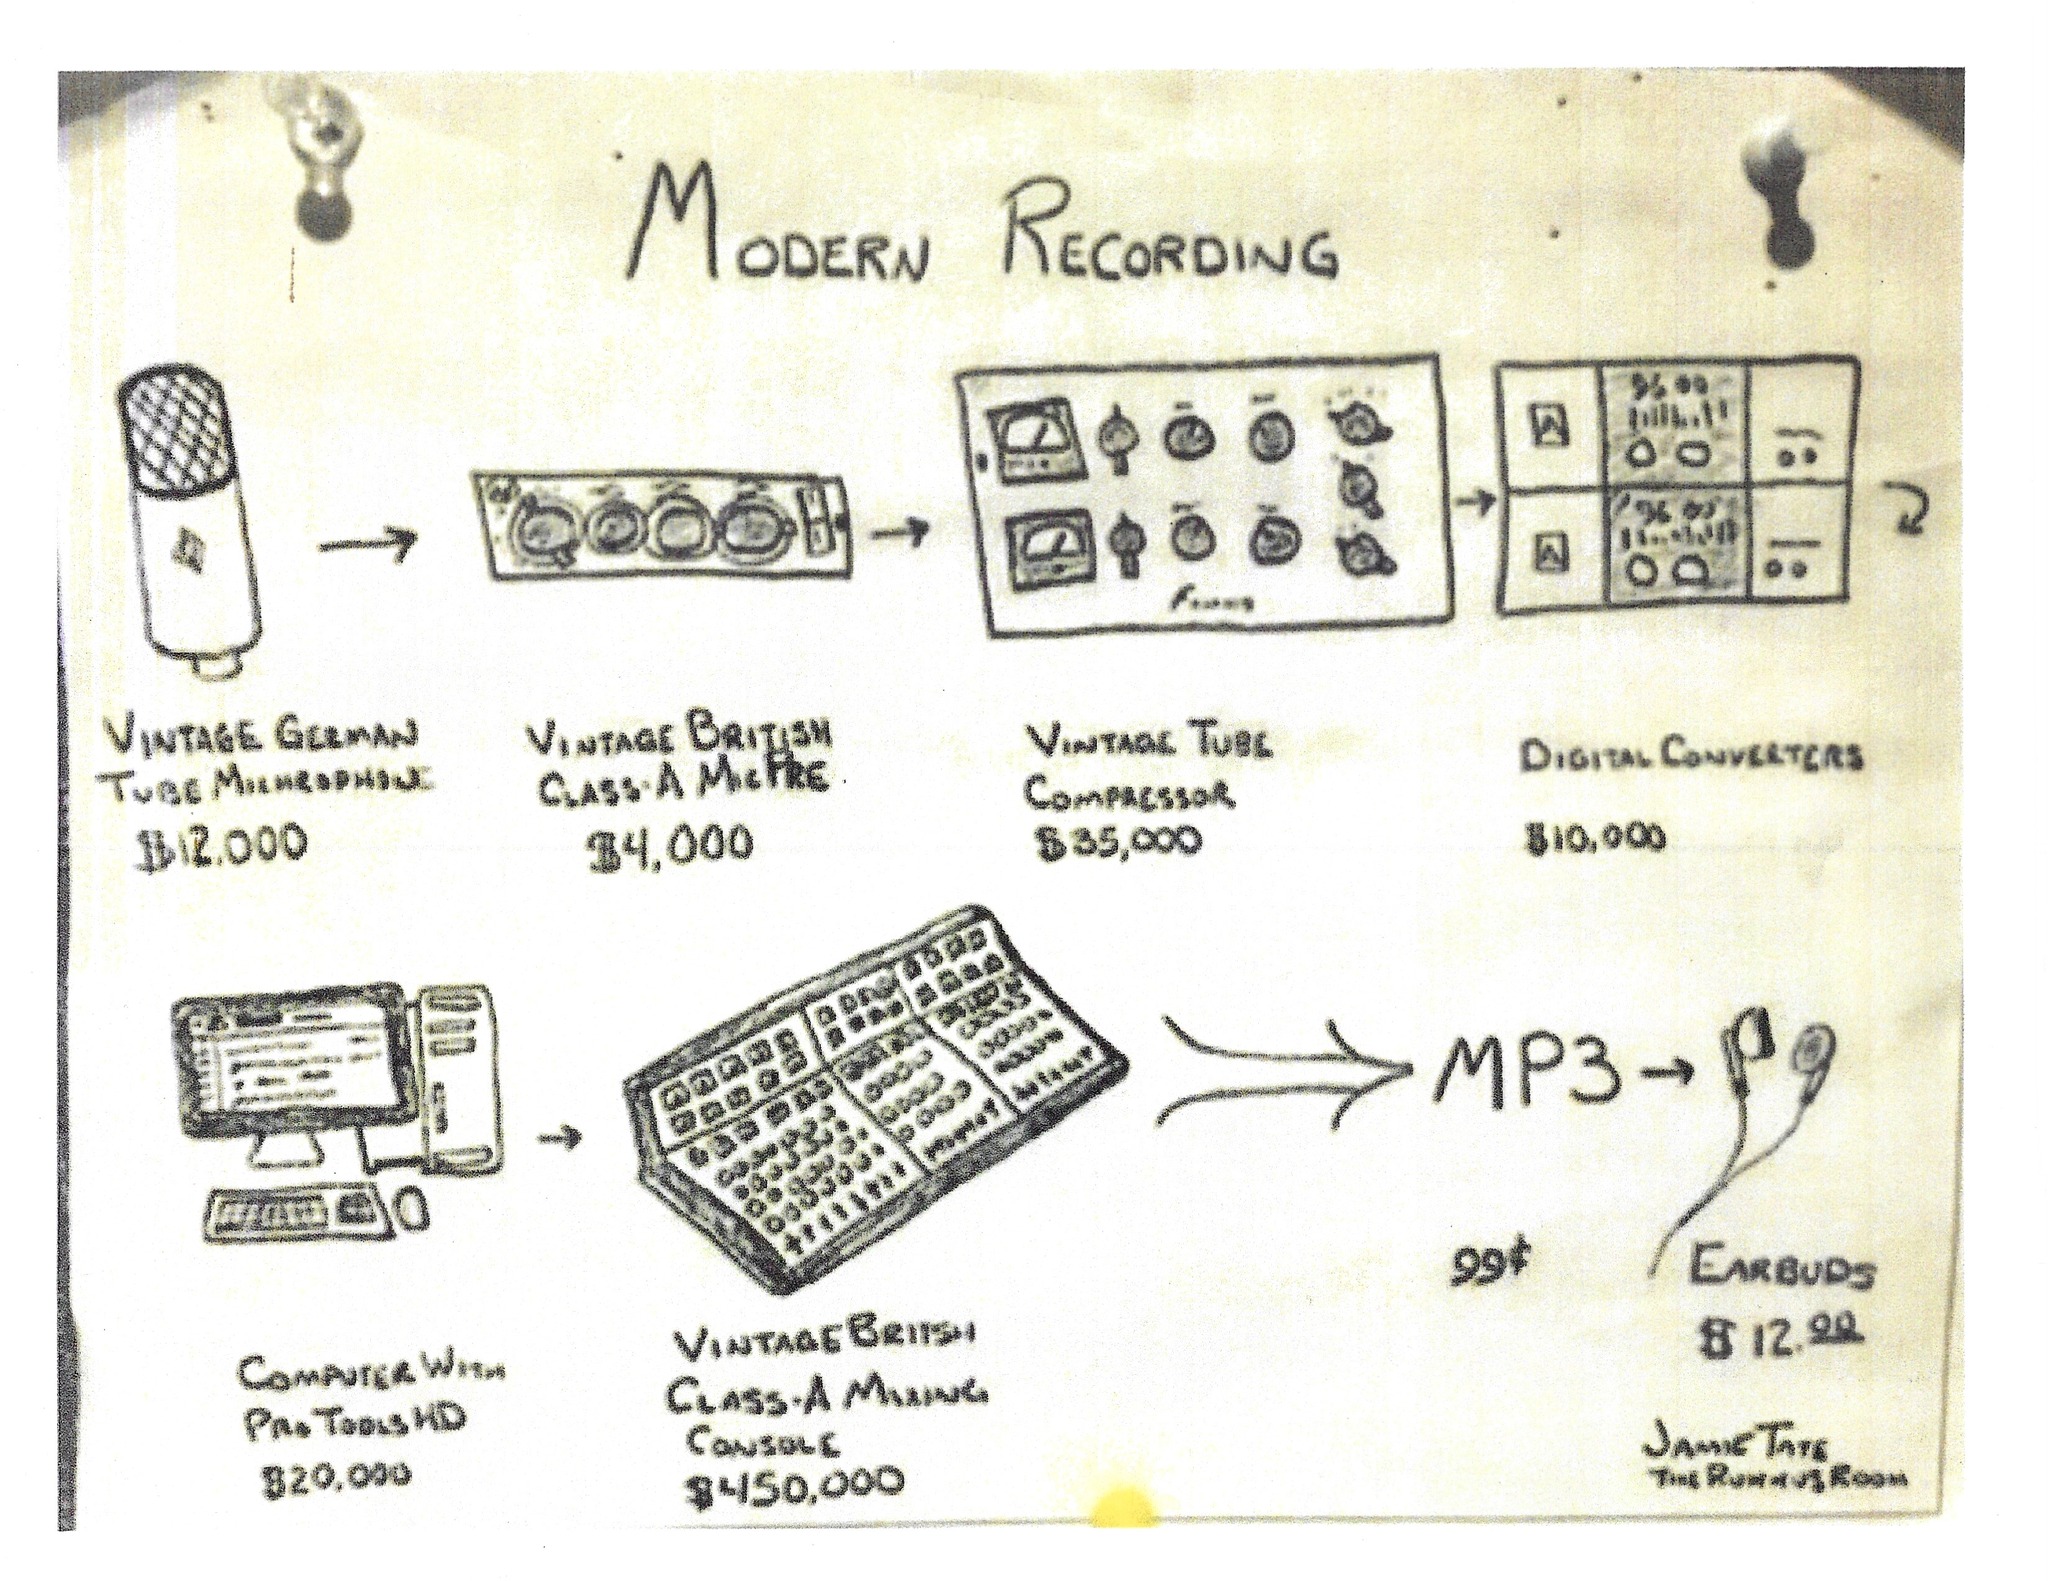 MODERN RECORDING
96 00
96 00
VINTAGE GERMAN
TUBE MICHROPHONE
$12,000
VINTAGE BRITISH
CLASS-A MIC PRE
$4,000
VINTAGE TUBE
COMPRESSOR
$35,000
DIGITAL CONVERTERS
$10,000
MP3
99¢
EARBUDS
$12.00
COMPUTER WITH
PRO TOOLS HD
$20,000
VINTAGE BRITISH
CLASS-A MIXING
CONSOLE
$450,000
JAMIE TATE
THE RUKKUS ROOM